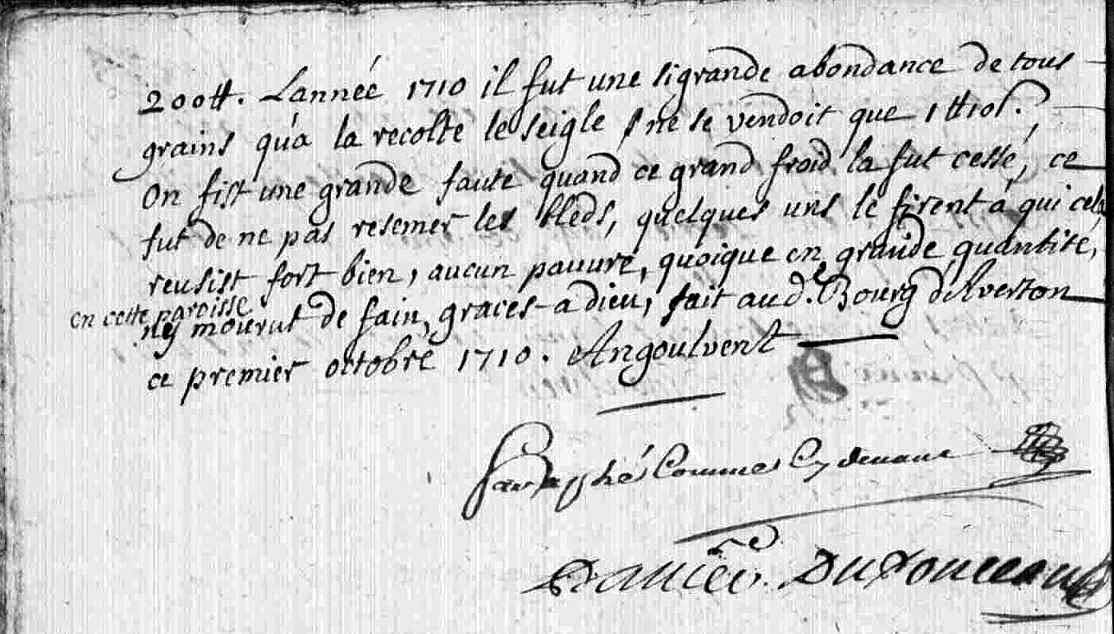 200tt. Lannéé 1710 il fut une sigrande abondance de tous
grains qu'a la recolte le seigle, ne se vendoit que 1tt10s.,
On fist une grande faute quand ce grand froid la fut cessé, ce
fut de ne pas resemer les bleds, quelques uns le firent a qui cela
reusist fort bien, aucun pauure, quoique en grande quantité,
en cette paroisse
ny mourut de fain, graces a dieu, fait aud.e Bourg d'Averton
ce premier octobre 1710. Angoulvent
Paraphés Commes Cy devant